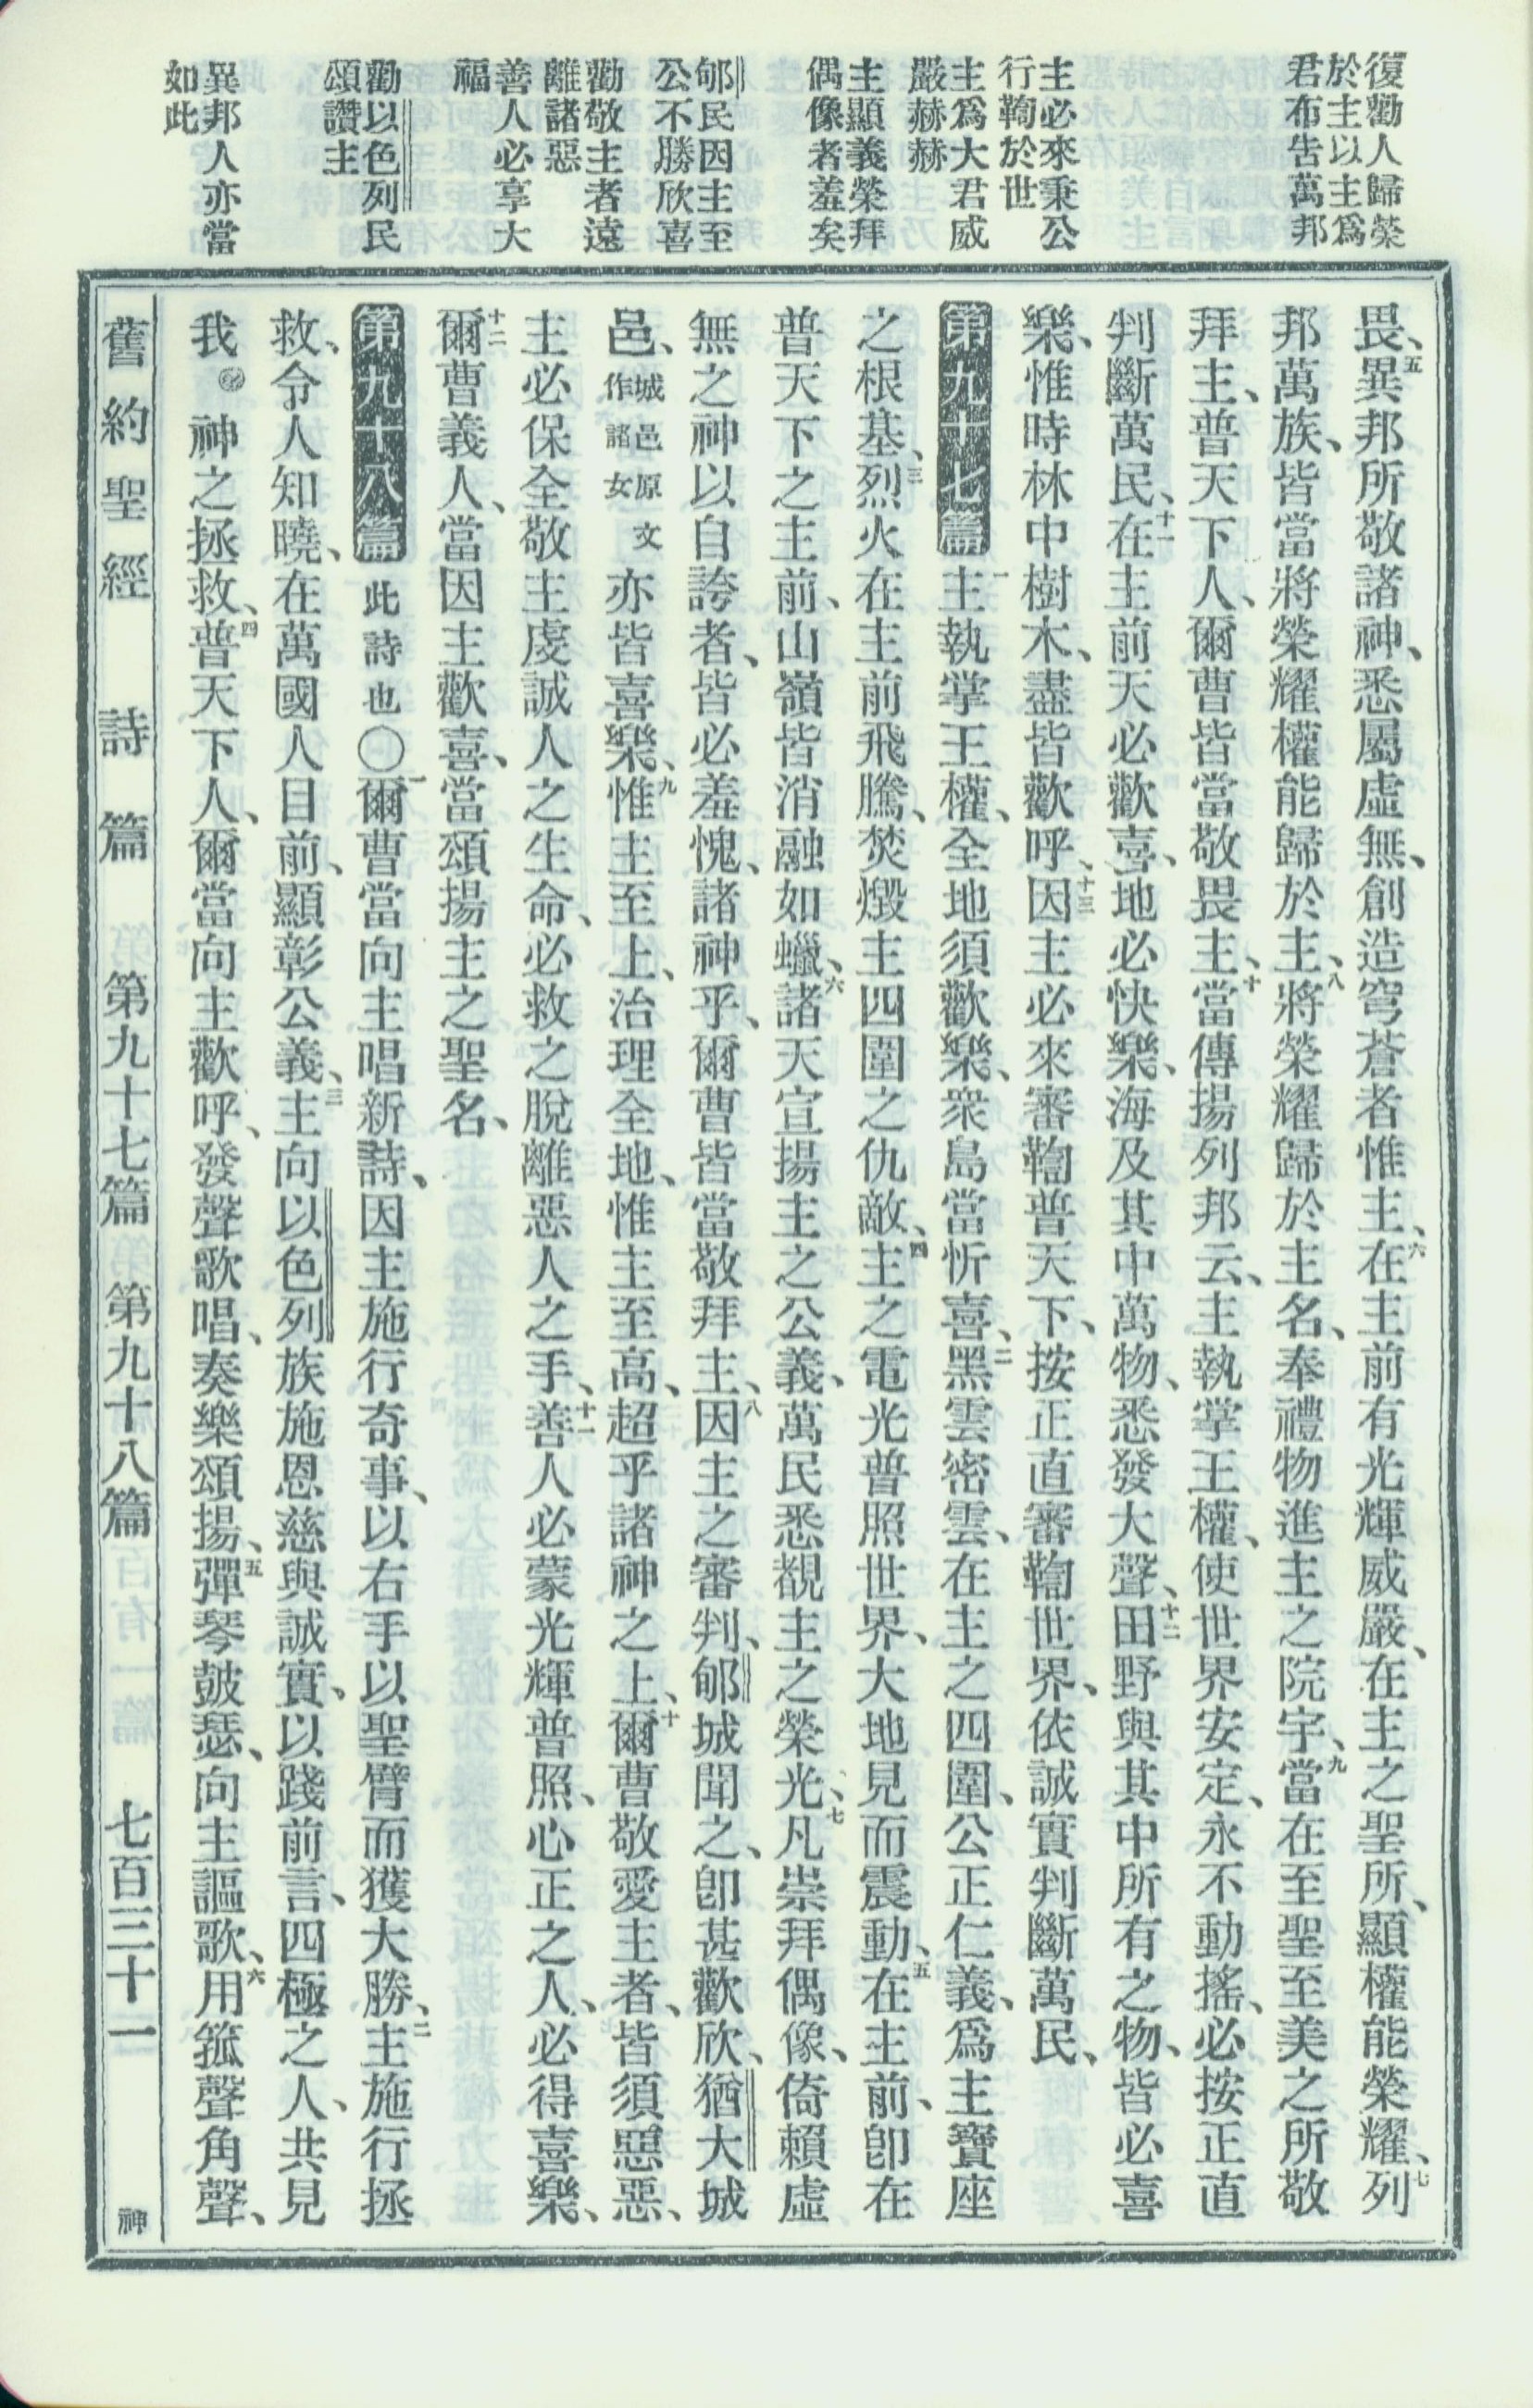 復勸人歸榮
於主以主爲
君布吿萬邦
主必來秉公
行鞫於世
主爲大君威
嚴赫赫
主顯義榮拜
偶像者羞矣
郇民因主至
公不勝欣喜
勸敬主者遠
離諸惡
善人必享大
福
勸以色列民
頌讚主
異邦人亦當
如此
畏、五異邦所敬諸神、悉屬虛無、創造穹蒼者惟主、六在主前有光輝威嚴、在主之聖所、顯權能榮耀、七列
邦萬族、皆當將榮耀權能歸於主、八將榮耀歸於主名、奉禮物進主之院宇、九當在至聖至美之所敬
拜主、普天下人、爾曹皆當敬畏主、十當傳揚列邦云、主執掌王權、使世界安定、永不動搖、必按正直
判斷萬民、十一在主前天必歡喜、地必快樂、海及其中萬物、悉發大聲、十二田野與其中所有之物、皆必喜
樂、惟時林中樹木、盡皆歡呼、十三因主必來審鞫普天下、按正直審鞫世界、依誠實判斷萬民、
第九十七篇 一主執掌王權、全地須歡樂、衆島當忻喜、二黑雲密雲、在主之四圍、公正仁義、爲主寶座
之根基、三烈火在主前飛騰、焚燬主四圍之仇敵、四主之電光普照世界、大地見而震動、五在主前、卽在
普天下之主前、山嶺皆消融如蠟、六諸天宣揚主之公義、萬民悉覩主之榮光、七凡崇拜偶像、倚賴虛
無之神以自誇者、皆必羞愧、諸神乎、爾曹皆當敬拜主、八因主之審判、郇城聞之、卽甚歡欣、猶大城
邑、城邑原文作諸女亦皆喜樂、九惟主至上、治理全地、惟主至高、超乎諸神之上、十爾曹敬愛主者、皆須惡惡、
主必保全敬主虔誠人之生命、必救之脫離惡人之手、十一善人必蒙光輝普照、心正之人、必得喜樂、
十二爾曹義人、當因主歡喜、當頌揚主之聖名、
第九十八篇 此詩也〇一爾曹當向主唱新詩、因主施行奇事、以右手以聖臂而獲大勝、二主施行拯
救、令人知曉、在萬國人目前、顯彰公義、三主向以色列族施恩慈與誠實、以踐前言、四極之人、共見
我神之拯救、四普天下人、爾當向主歡呼、發聲歌唱、奏樂頌揚、五彈琴鼓瑟、向主謳歌、六用箛聲角聲、
舊約聖經 詩篇 第九十七篇 第九十八篇 七百三十一 神